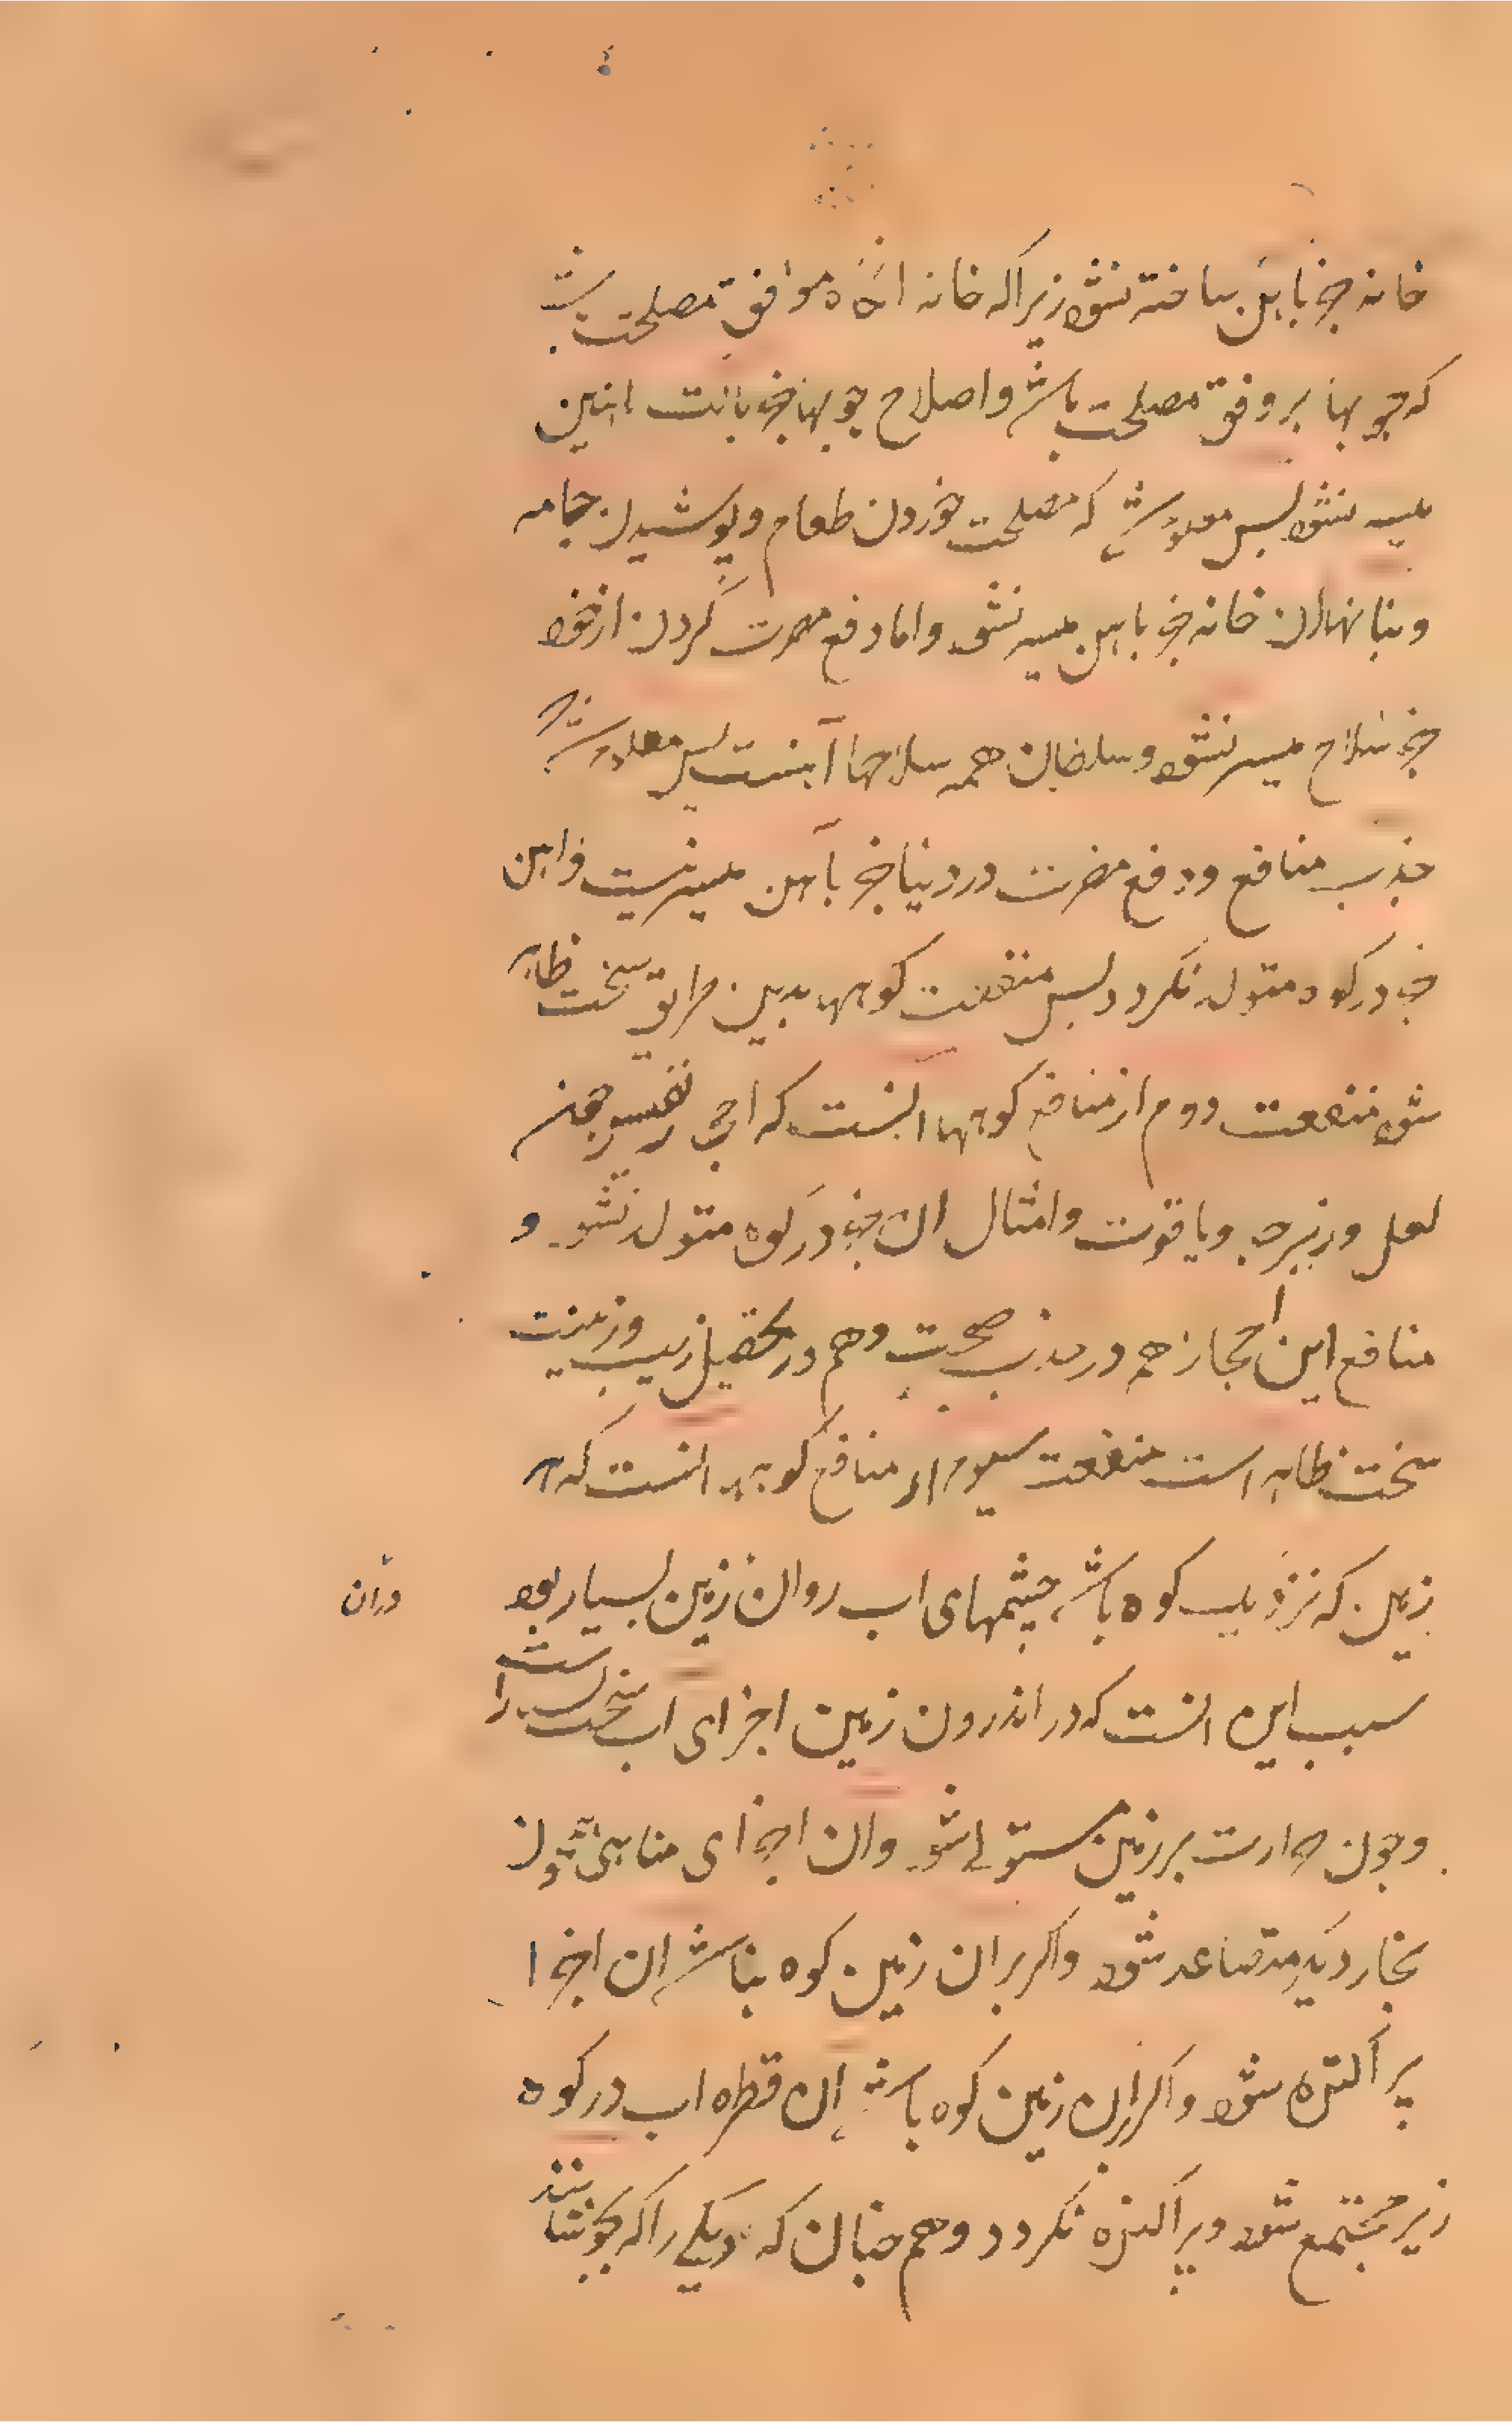 خانه جز باهن ساخته نشود زیراکه خانه انگاه موافق مصلحت باشد
که چوبها بر وفق مصلحت باشد و اصلاح چوبها جز بالت اهنین
میسر نشود پس معلوم شد که مصلحت خوردن طعام و پوشیدن جامه
و بنا نهادن خانه جز باهن میسر نشود و اما دفع مضرت کردن از خود
جز بسلاح میسر نشود و سلطان همه سلاحها آهنست پس معلوم شد که
جذب منافع و دفع مضرت در دنیا جز بآهن میسر نیست و اهن
جز در کوه متولد نگردد پس منفعت کوهها بدین طریق سخت ظاهر
شود منفعت دوم از منافع کوهها آنست که احجار نفیس چون
لعل و زبرجد و یاقوت و امثال ان جز در کوه متولد نشود و
منافع این احجار هم در جذب صحت و هم در تحصیل زیب و زینت
سخت ظاهر است منفعت سیوم از منافع کوهها انست که هر
زمین که نزدیک کوه باشد چشمهای اب روان زمین بسیار بود
دران
سبب این انست که در اندرون زمین اجزای اب سخت بسیار است
و چون حرارت بر زمین مستولی شود و ان اجزای مناهی شود از
بخار دیگر متصاعد شود و اگر بران زمین کوه نباشد ان اجزا
پراکنده شود و اگر بران زمین کوه باشد ان قطره اب در کوه
زیر مجتمع شود و پراکنده نگردد و هم چنان که دیکی را که بجوشانند